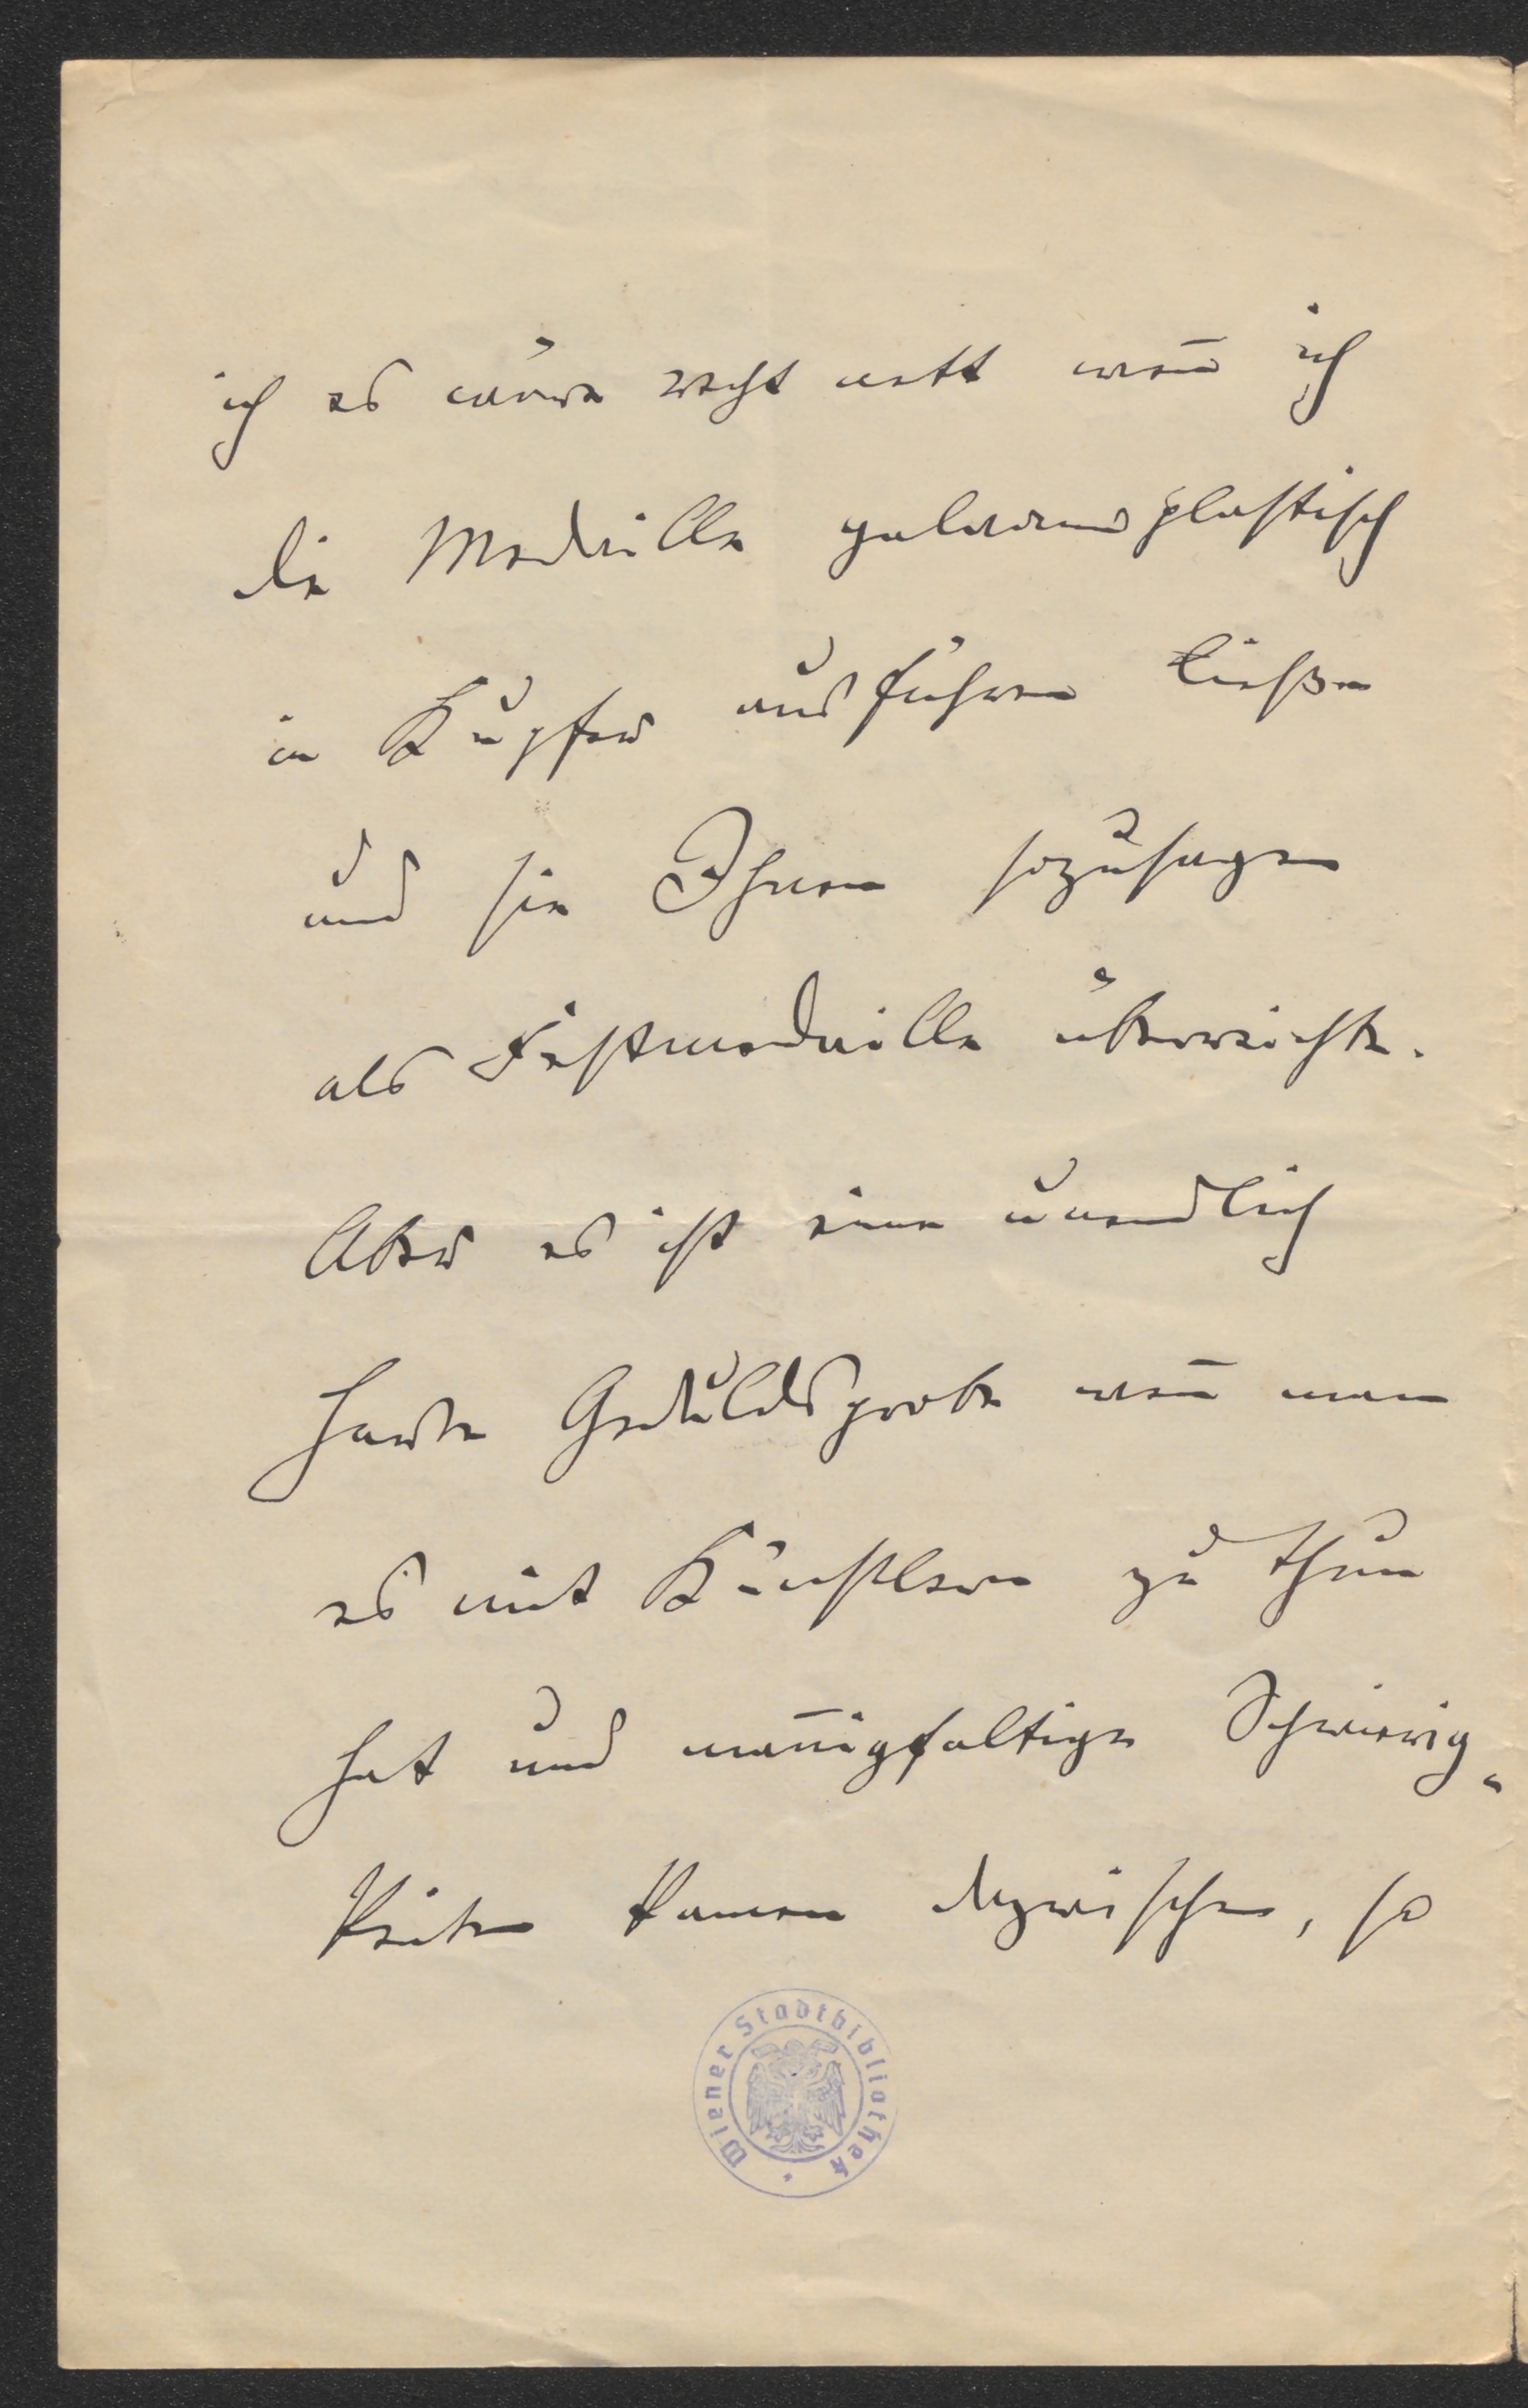 ich es wäre recht nett wen̄ ich
die Medaille galvanoplastisch
in Kupfer ausführen ließe
und sie Ihnen sozusagen
als Festmedaille überreichte.
Aber es ist eine unendlich
harte Geduldsprobe wen̄ man
es mit Künstlern zu thun
hat und man̄igfaltige Schwierig-
keiten kamen dazwischen, so
Wiener Stadtbibliothek